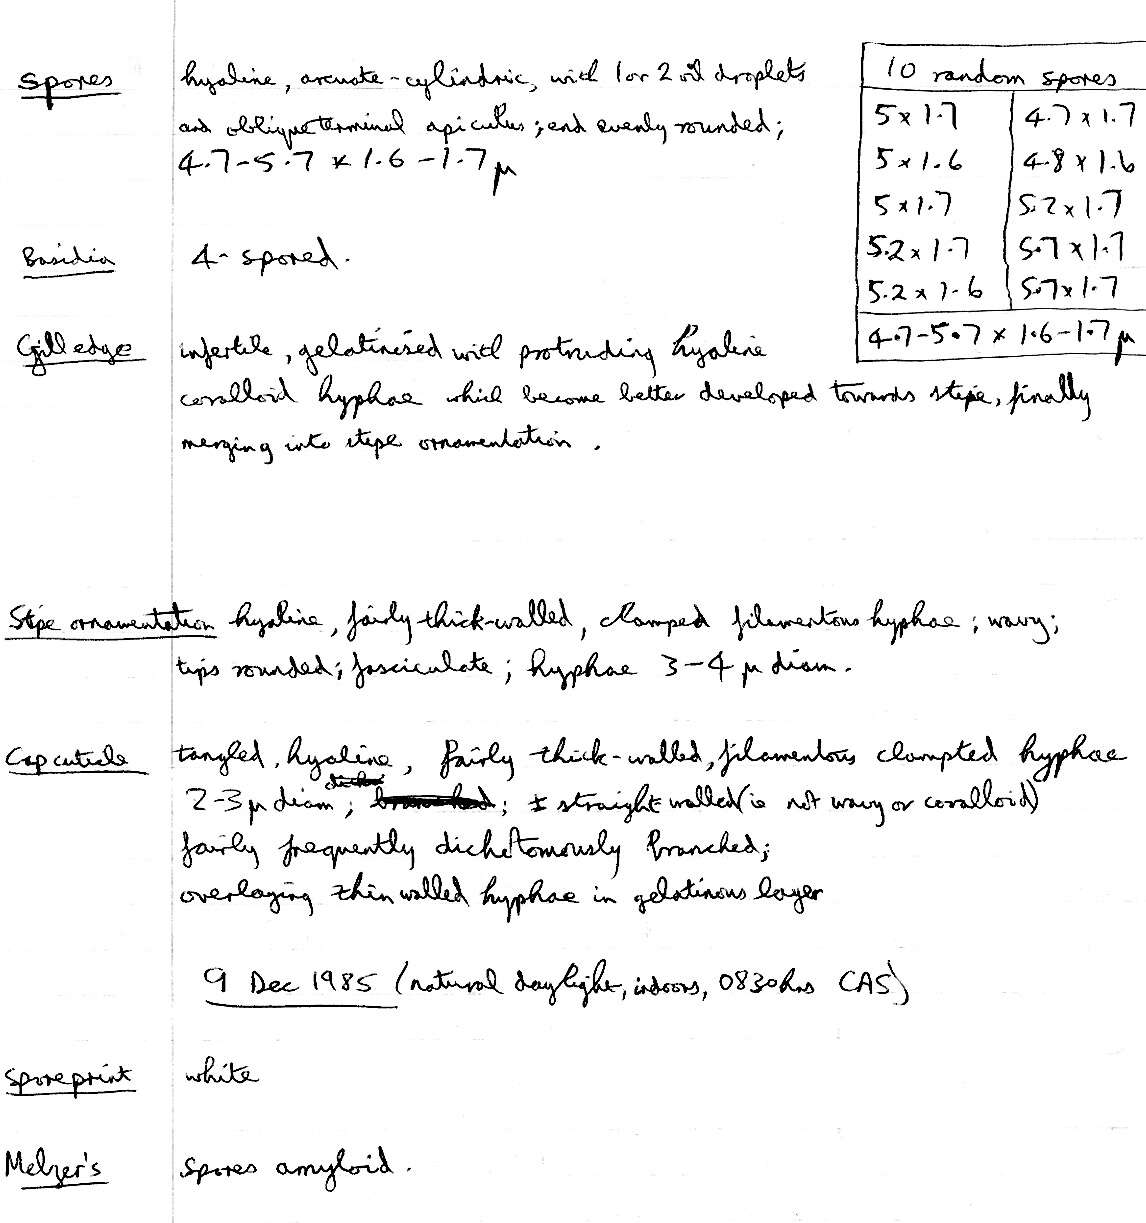 Spores hyaline, arcuate-cylindric, with 1 or 2 oil droplets
and oblique terminal apiculus; end evenly rounded;
4.7-5.7 x 1.6-1.7 μ
10 random spores
5 x 1.7 4.7 x 1.7
5 x 1.6 4.8 x 1.6
5 x 1.7 5.2 x 1.7
5.2 x 1.7 5.7 x 1.7
5.2 x 1.6 5.7 x 1.7
4.7-5.7 x 1.6-1.7 μ
Basidia 4-spored.
Gill edge infertile, gelatinised with protruding hyaline
coralloid hyphae which become better developed towards stipe, finally
merging into stipe ornamentation.
Stipe ornamentation hyaline, fairly thick-walled, clamped filamentous hyphae; wavy;
tips rounded; fasciculate; hyphae 3-4 μ diam.
Cap cuticle tangled, hyaline, fairly thick-walled, filamentous clampted hyphae
2-3 μ diam; branched; ± straight walled (ie not wavy or coralloid)
fairly frequently dichotomously branched;
overlaying thin walled hyphae in gelatinous layer
9 Dec 1985 (natural daylight, indoors, 0830hrs CAS)
Sporeprint white
Melzer's spores amyloid.